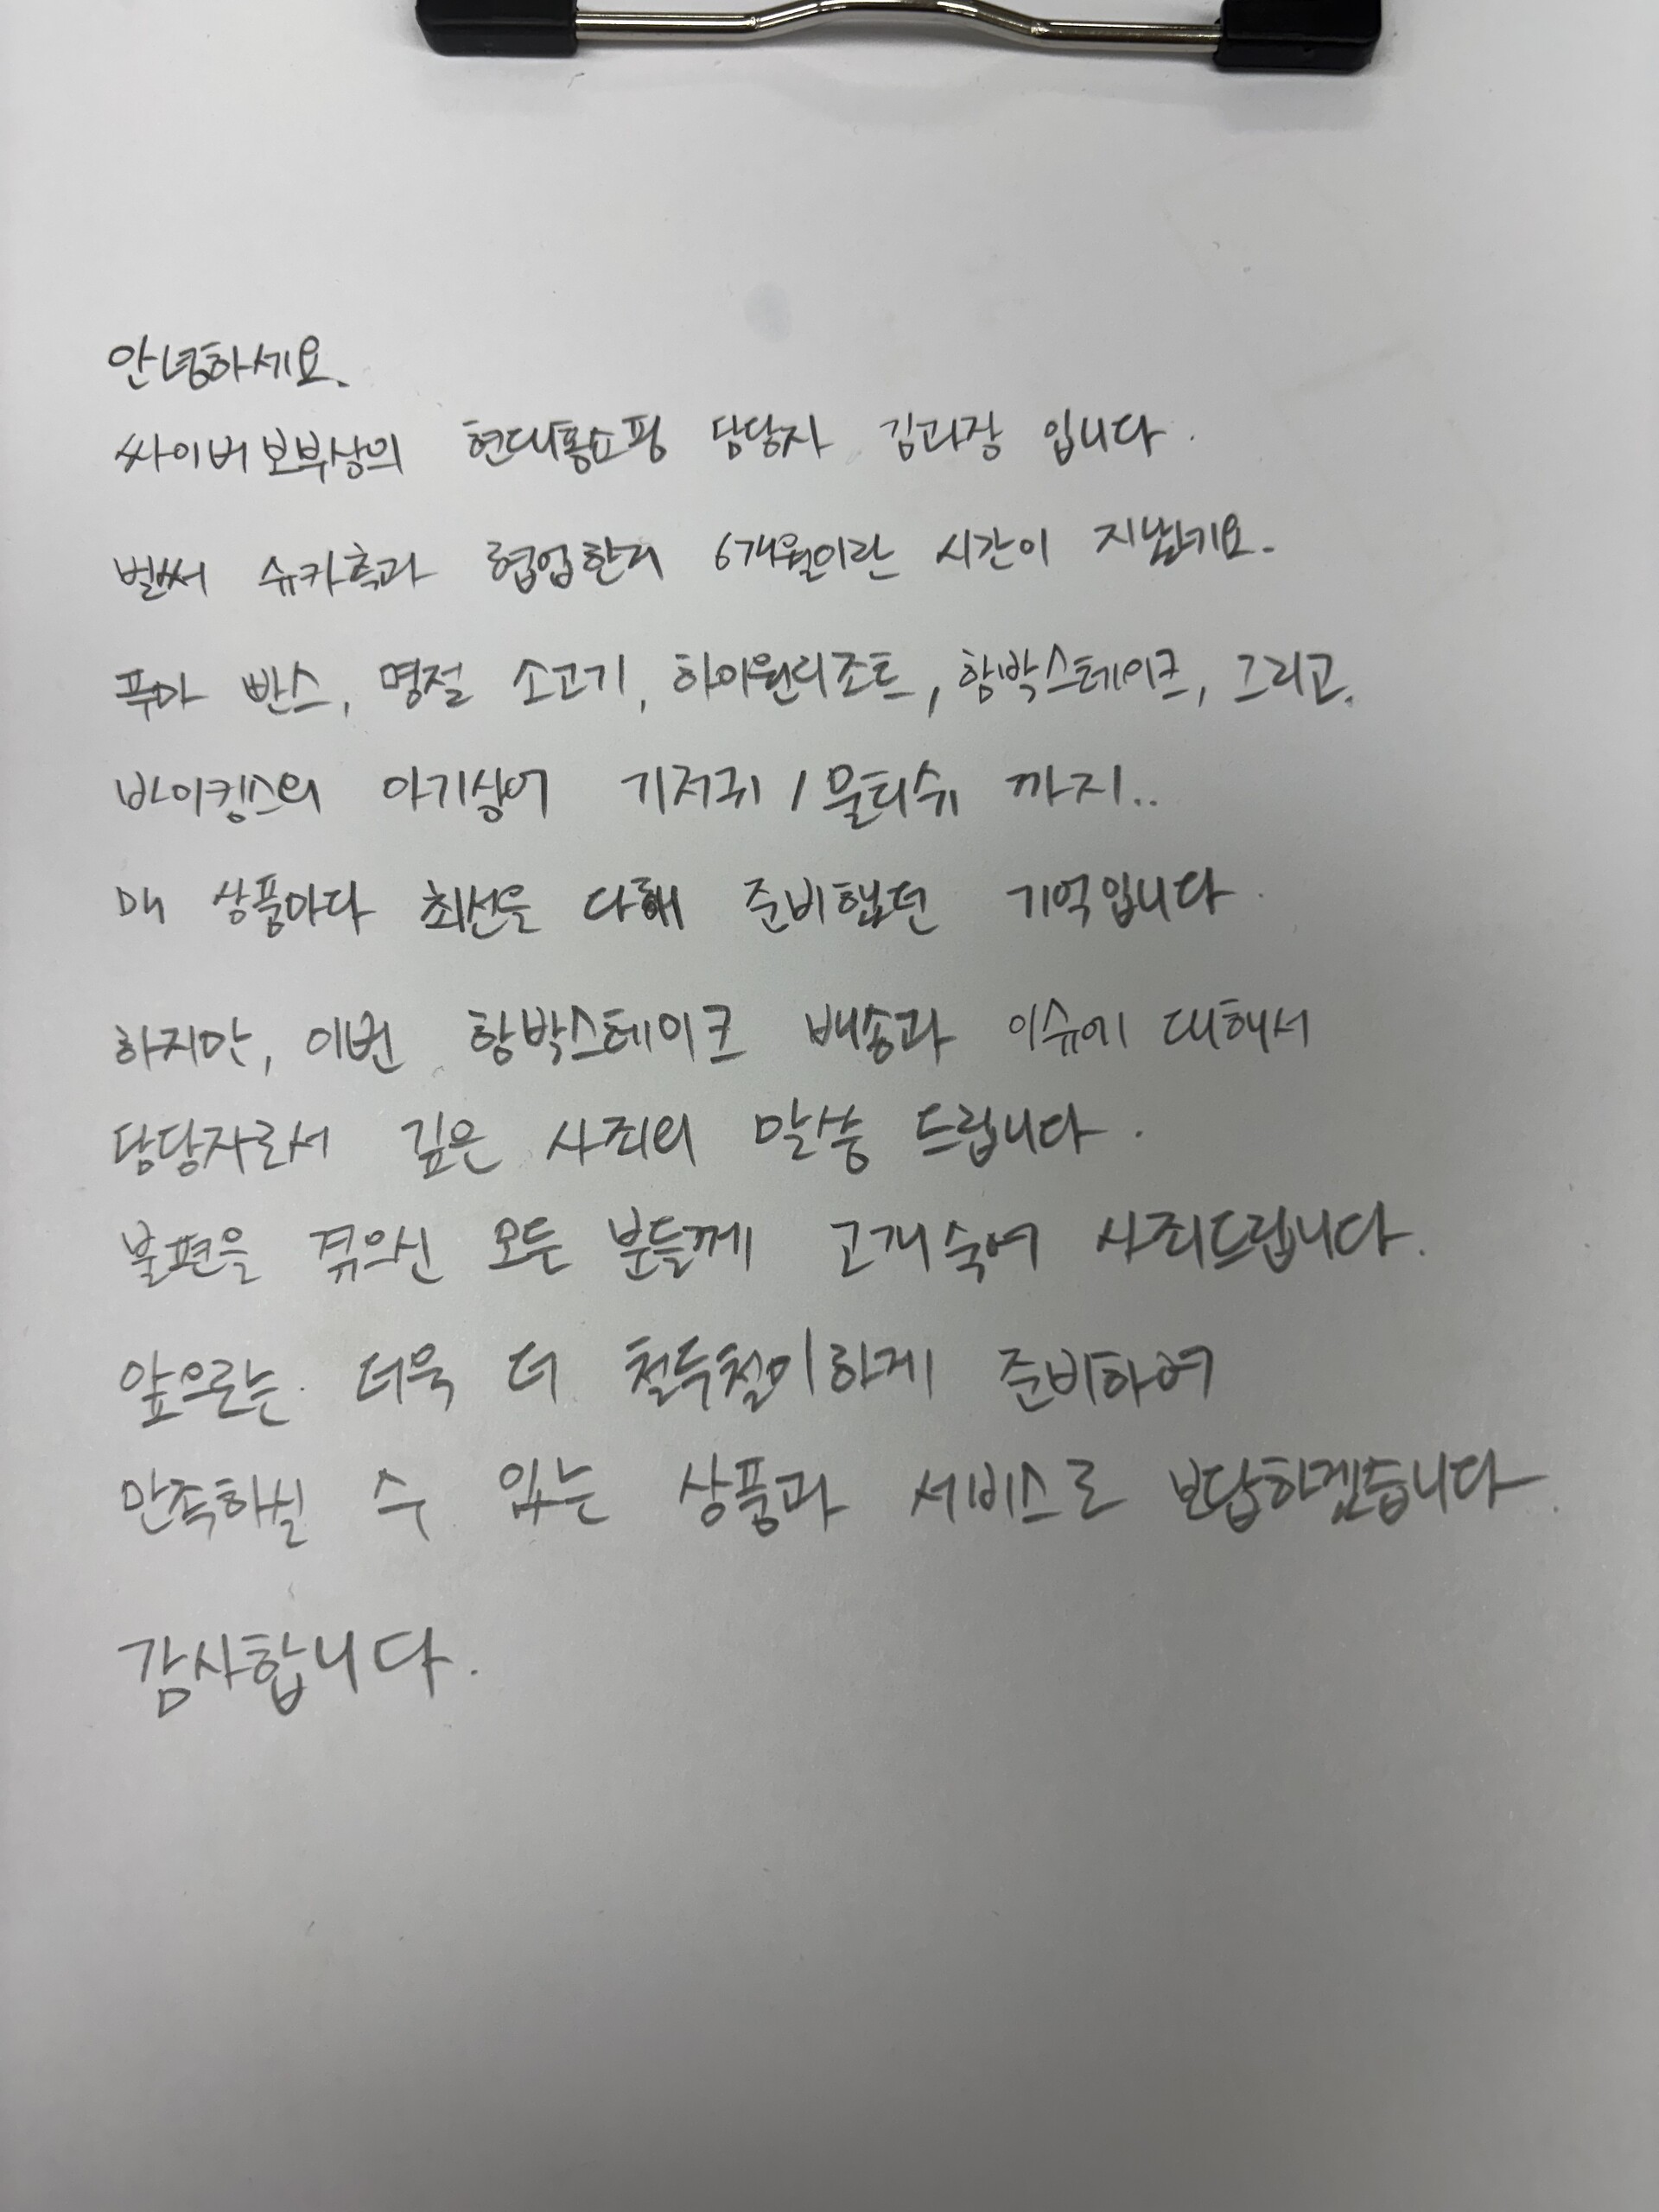 안녕하세요.
싸이버보부상의 현대홈쇼핑 담당자 김과장 입니다.
벌써 슈카측과 협업한지 6개월이란 시간이 지났네요.
푸마 빤스, 명절 소고기, 하이원리조트, 함박스테이크, 그리고.
바이킹스의 아기상어 기저귀 / 물티슈 까지..
매 상품마다 최선을 다해 준비했던 기억입니다.
하지만, 이번 함박스테이크 배송과 이슈에 대해서
담당자로서 깊은 사죄의 말씀 드립니다.
불편을 겪으신 모든 분들께 고개숙여 사죄드립니다.
앞으로는 더욱 더 철두철미하게 준비하여
만족하실 수 있는 상품과 서비스로 보답하겠습니다.
감사합니다.